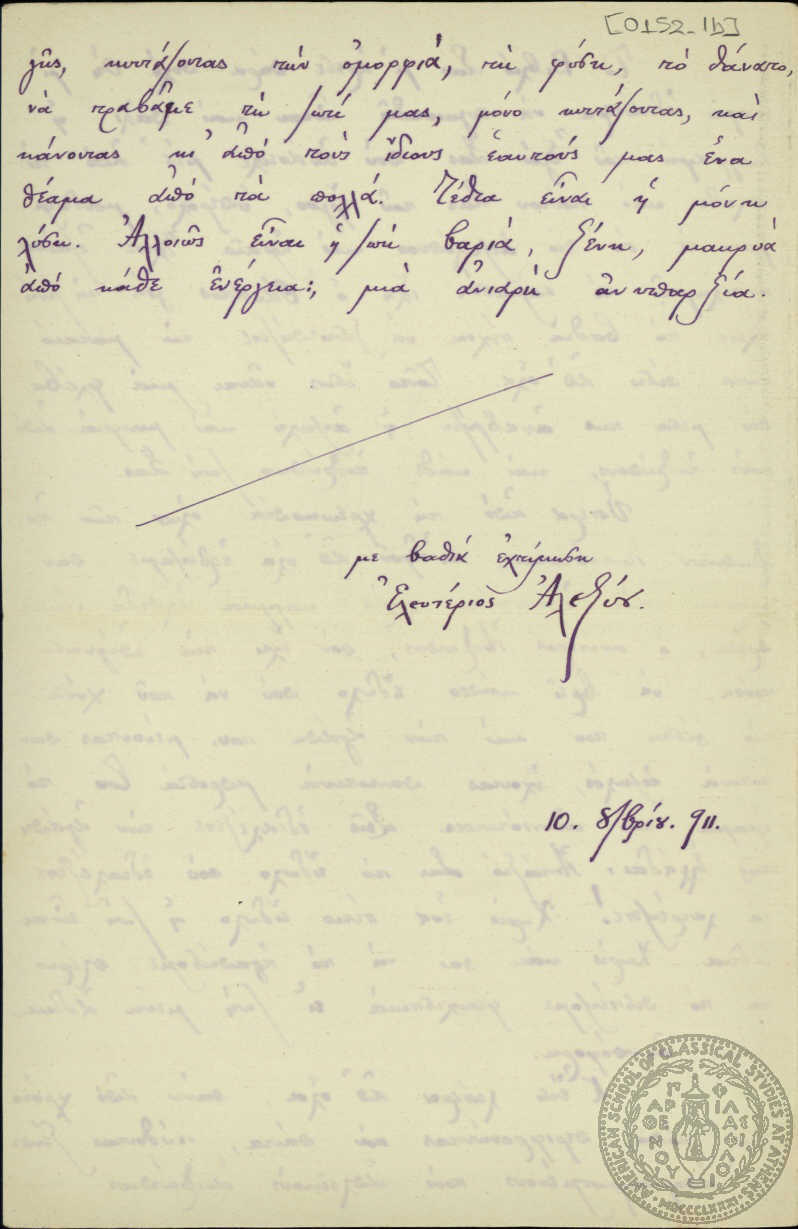 [0152-1b]
γῆς, κυττάζοντας τὴν ὀμορφιά, τὴ φύση, τὸ θάνατο,
νὰ τραβᾶμε τὴ ζωή μας, μόνο κυττάζοντας, καὶ
κάνοντας κι' ἀπὸ τοὺς ἴδιους ἑαυτούς μας ἕνα
θέαμα ἀπὸ τὰ πολλά. Τέτια εἶναι ἡ μόνη
λύση. Ἀλλοιῶς εἶναι ἡ ζωὴ βαριά, ξένη, μακρυὰ
ἀπὸ κάθε ἐνέργεια:, μιὰ ἀνιαρὴ ἀνυπαρξία.
με βαθιὰ ἐχτίμηση
Ἐλευτέριος Ἀλεξίου.
10. 8/βρίου. 911.
AMERICAN SCHOOL OF CLASSICAL STUDIES AT ATHENS
ΠΑΡΘΕΝΟΥ ΦΙΛΑΣ ΦΙΛΟΙ
MDCCCLXXXI